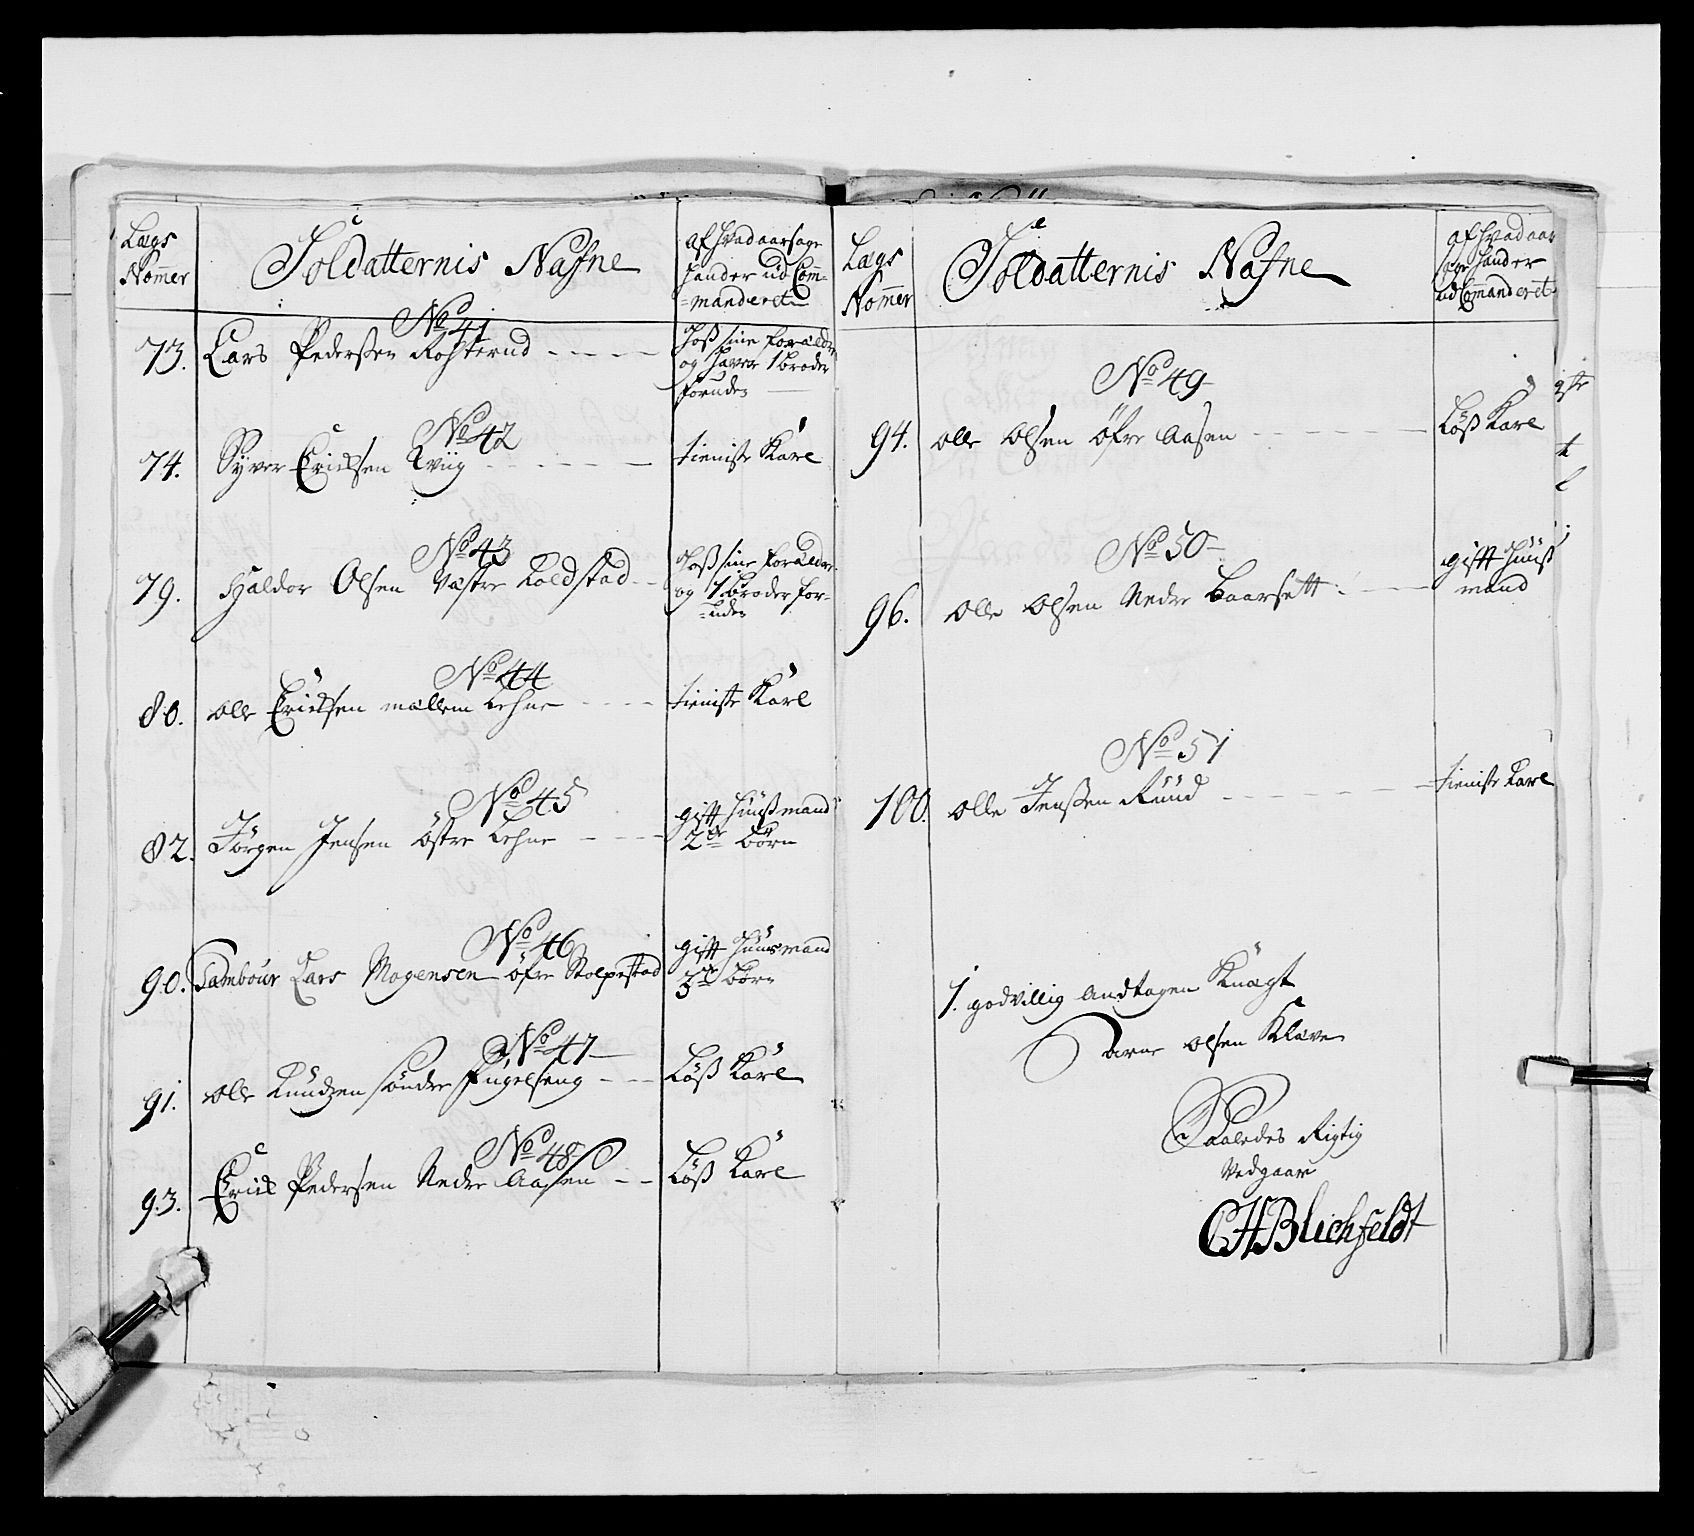 Lægs
Nomer
Soldatternis Nafne
af hvad aarsage
hander ud Com-
manderet
No 41
73. Lars Pedersen Rohterud
hoß sine forældre
og haver 1 broder
foruden
No 42
74. Syver Ericksen Qviig
tieniste Karl
No 43
79. Haldor Olsen Vastre Koldstad
hoß sine forældre
og 1 broder for-
uden
No 44
80. Olle Ericksen mallem Lehne
tieniste Karl
No 45
82. Jörgen Jensen Östre Lehne
gift Huußmand
2de börn
No 46
90. Tambour Lars Mogensen öfre Stolpestad
gift Huusmand
3de börn
No 47
91. Olle Knudzen söndre Fugelseng
Löß Karl
No 48
93. Erick Pedersen Nedre Aasen
Löß Karl
Lægs
Nomer
Soldatternis Nafne
af hvad aar
sage hander
ud Comanderet
No 49
94. Olle Olsen öfre Aasen
Löß Karl
No 50
96. Olle Olsen Nedre Baarsett
gift Huuß
mand
No 51
100. Olle Jenssen Ruud
tieniste Karl
1. godvillig Andtagen Knægt
Arne Olsen Klave
Saaledes Rigtig
Vedgaar
CHBlichfeldt